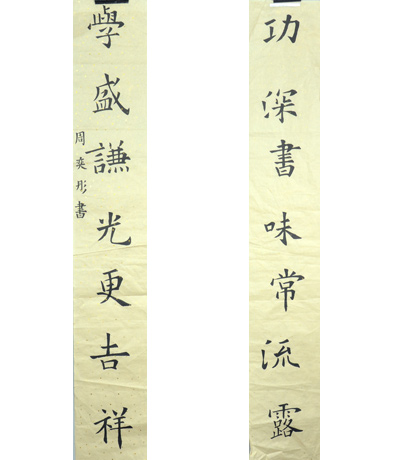 功深書味常流露
學盛謙光更吉祥
周奕彤書